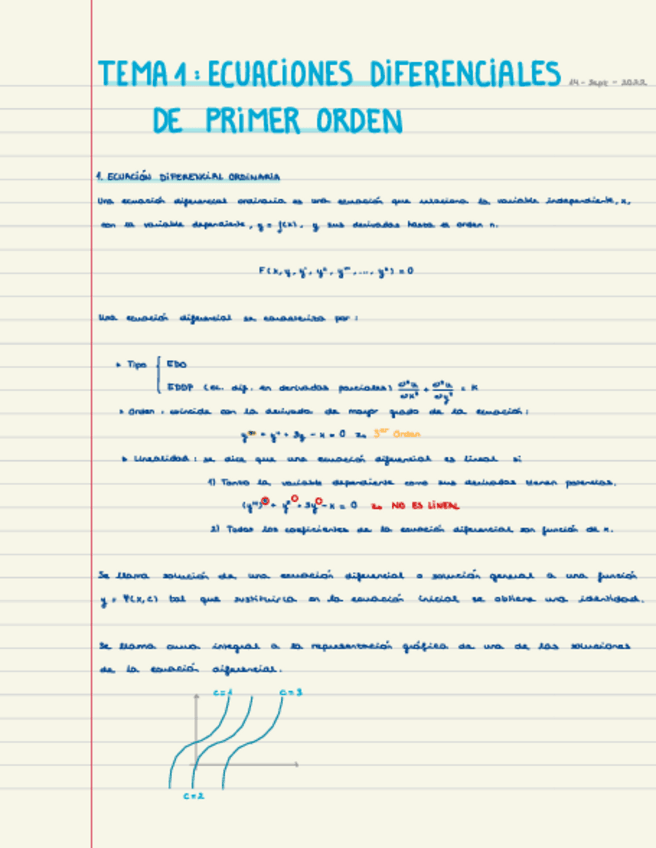 TEMA 1: ECUACIONES DIFERENCIALES 14 - Sept - 2022
DE PRIMER ORDEN
1. ECUACIÓN DIFERENCIAL ORDINARIA
Una ecuación diferencial ordinaria es una ecuación que relaciona la variable independiente, x,
con la variable dependiente, y = f(x), y sus derivadas hasta el orden n.
F(x, y, y', y'', y''', ..., yⁿ) = 0
Una ecuación diferencial se caracteriza por:
Tipo { EDO
EDDP (ec. dif. en derivadas parciales) = K
Orden: coincide con la derivada de mayor grado de la ecuación:
y''' + y'' + 3y - x = 0 3er Orden
Linealidad: se dice que una ecuación diferencial es lineal si
1) Tanto la variable dependiente como sus derivadas tienen potencias.
NO ES LINEAL
2) Todos los coeficientes de la ecuación diferencial son función de x.
Se llama solución de una ecuación diferencial o solución general a una función
y = φ(x,c) tal que sustituirla en la ecuación inicial se obtiene una identidad.
Se llama curva integral a la representación gráfica de una de las soluciones
de la ecuación diferencial.
c=1 c=3
c=2